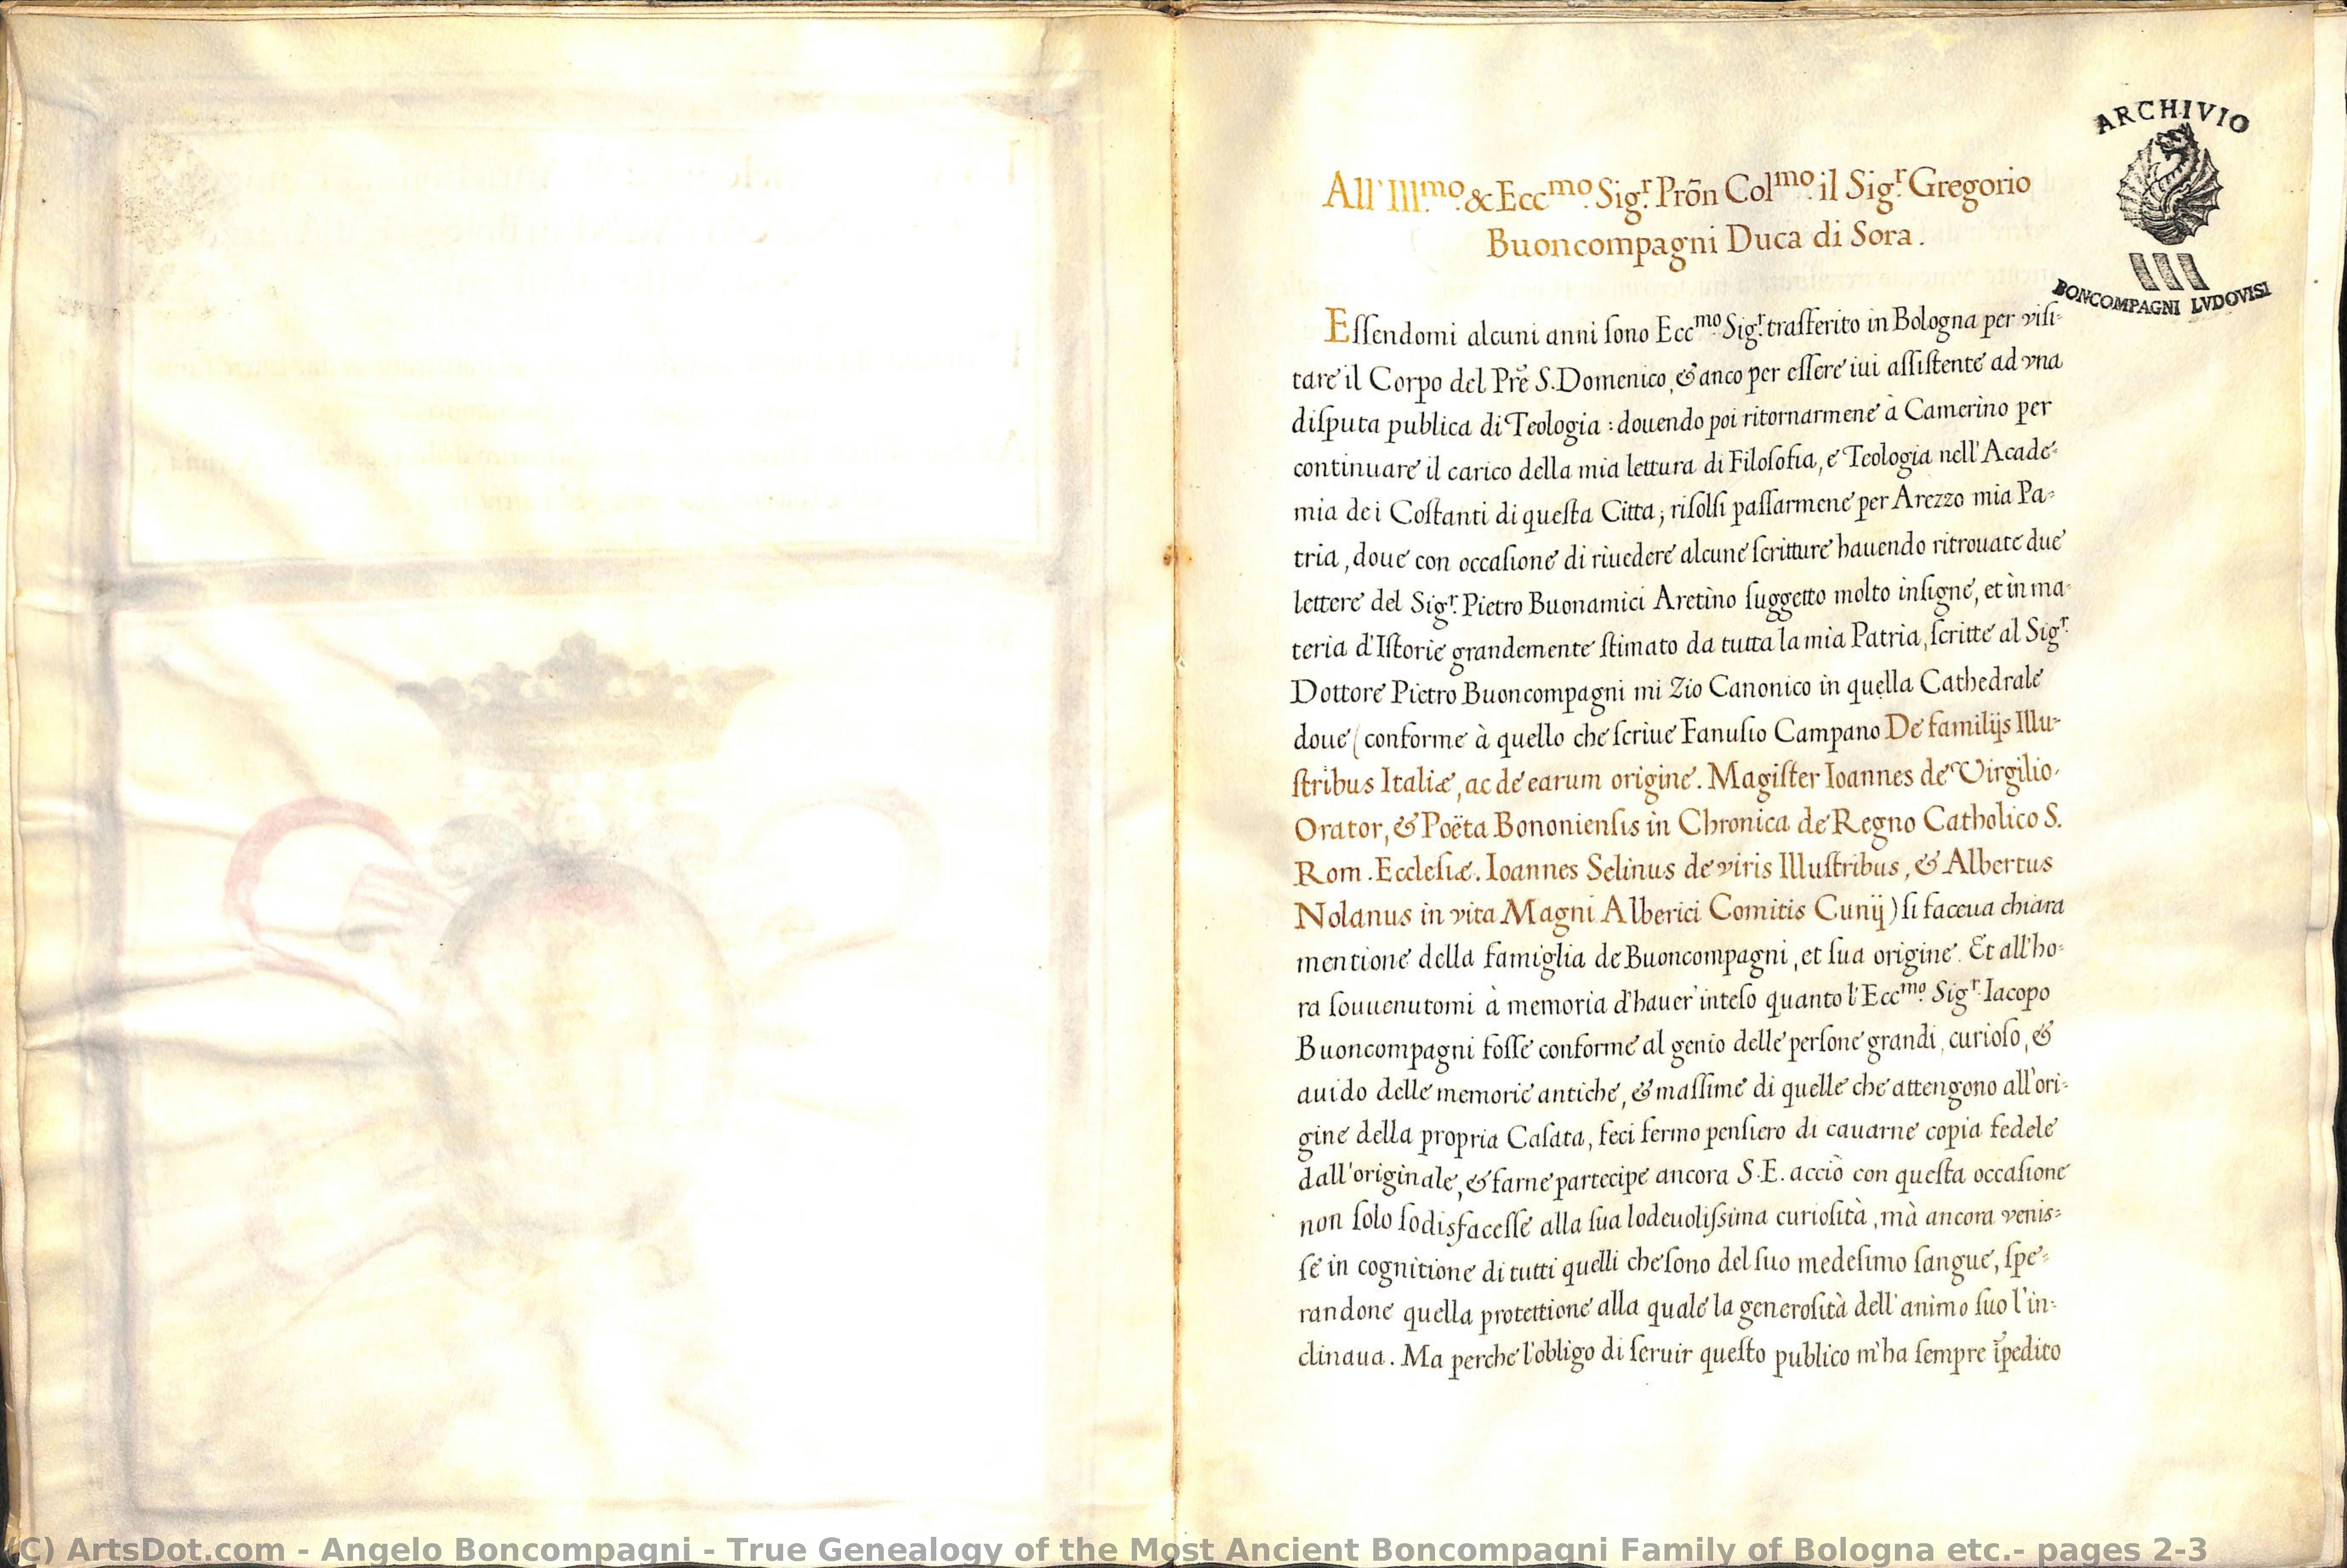 ARCHIVIO
BONCOMPAGNI LVDOVISI
All' Ill.mo & Ecc.mo Sig.r Prõn Col.mo il Sig.r Gregorio
Buoncompagni Duca di Sora.
Eſſendomi alcuni anni ſono Ecc.mo Sig.r traſferito in Bologna per viſi-
tare il Corpo del Prẽ S. Domenico, & anco per eſſere iui aſſiſtente ad vna
diſputa publica di Teologia : douendo poi ritornarmene à Camerino per
continuare il carico della mia lettura di Filoſofia, e Teologia nell' Acade-
mia dei Coſtanti di queſta Citta; riſolſi paſſarmene per Arezzo mia Pa-
tria, doue con occaſione di riuedere alcune ſcritture hauendo ritrouate due
lettere del Sig.r Pietro Buonamici Aretino ſuggetto molto inſigne, et in ma-
teria d'Iſtorie grandemente ſtimato da tutta la mia Patria, ſcritte al Sig.r
Dottore Pietro Buoncompagni mi Zio Canonico in quella Cathedrale
doue (conforme à quello che ſcriue Fanuſio Campano De familijs Illu-
ſtribus Italiæ, ac de earum origine. Magiſter Ioannes de Virgilio
Orator, & Poëta Bononienſis in Chronica de Regno Catholico S.
Rom. Eccleſiæ. Ioannes Selinus de viris Illuſtribus, & Albertus
Nolanus in vita Magni Alberici Comitis Cunij) ſi faceua chiara
mentione della famiglia de Buoncompagni, et ſua origine. Et all'ho-
ra ſouuenutomi à memoria d'hauer inteſo quanto l'Ecc.mo Sig.r Iacopo
Buoncompagni foſſe conforme al genio delle perſone grandi, curioſo, &
auido delle memorie antiche, & maſſime di quelle che attengono all'ori-
gine della propria Caſata, feci fermo penſiero di cauarne copia fedele
dall'originale, & farne partecipe ancora S.E. acciò con queſta occaſione
non ſolo ſodisfaceſſe alla ſua lodeuoliſsima curioſità, mà ancora venis-
ſe in cognitione di tutti quelli che ſono del ſuo medeſimo ſangue, ſpe-
randone quella protettione alla quale la generoſità dell'animo ſuo l'in-
clinaua. Ma perche l'obligo di ſeruir queſto publico m'ha ſempre ĩpedito
(C) ArtsDot.com - Angelo Boncompagni - True Genealogy of the Most Ancient Boncompagni Family of Bologna etc.- pages 2-3